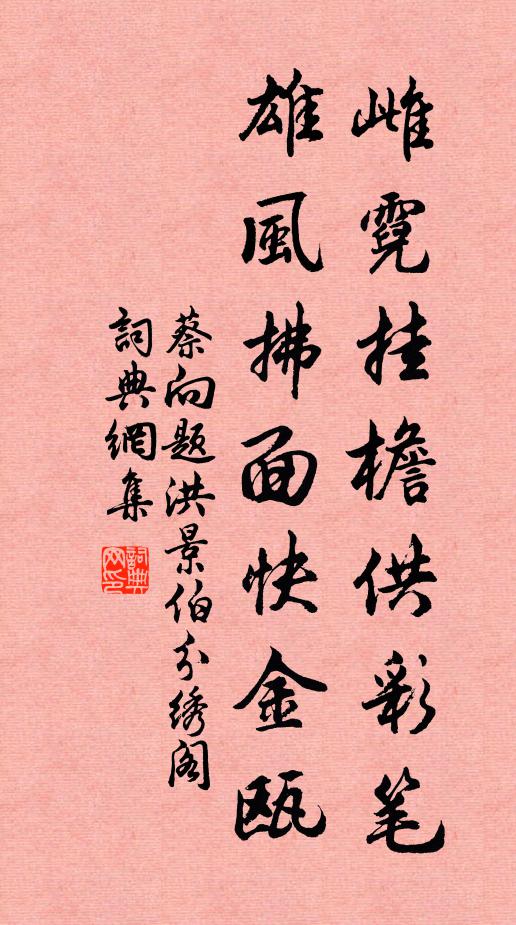 雌霓挂檐供彩笔
雄風拂面快金瓯
蔡向题洪景伯分绣阁
詞典網集
詞典网印